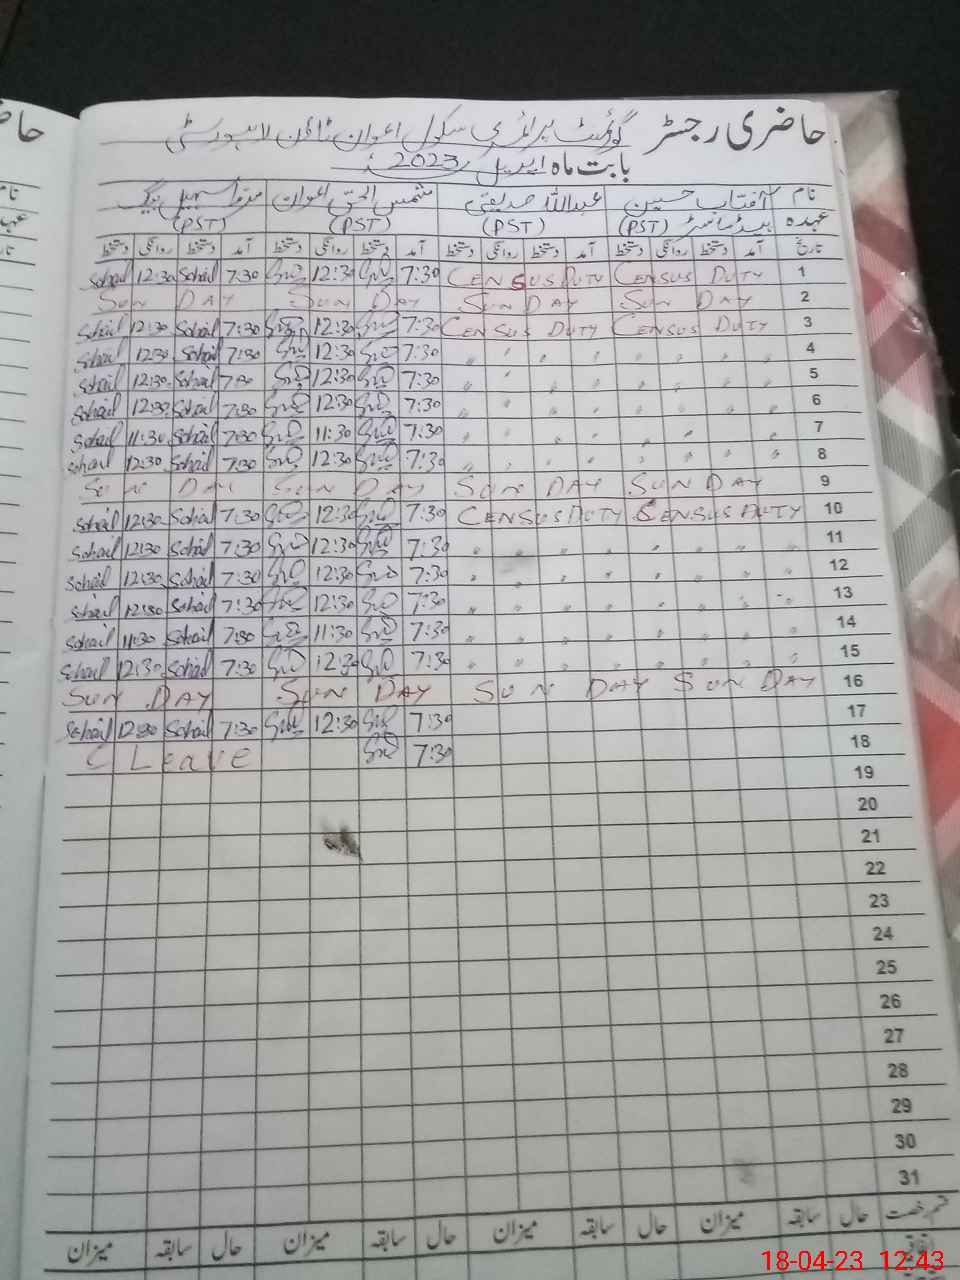 حاضری رجسٹر گورنمنٹ پرائمری سکول اعوان ٹاؤن لاہور سٹی
بابت ماہ اپریل 2023ء
نام آفتاب حسین عبداللہ صدیقی شمس الحق اعوان سہیل بیگ
عہدہ ہیڈ ماسٹر (PST) (PST) (PST) (PST)
تاریخ آمد دستخط روانگی دستخط آمد دستخط روانگی دستخط آمد دستخط روانگی دستخط آمد دستخط روانگی دستخط
1 CENSUS DUTY CENSUS DUTY 7:30 12:30 7:30 Sohail 12:30 Sohail
2 SUN DAY SUN DAY SUN DAY SUN DAY
3 CENSUS DUTY CENSUS DUTY 7:30 12:30 7:30 Sohail 12:30 Sohail
4 " " " " " " " " 7:30 12:30 7:30 Sohail 12:30 Sohail
5 " " " " " " " " 7:30 12:30 7:30 Sohail 12:30 Sohail
6 " " " " " " " " 7:30 12:30 7:30 Sohail 12:30 Sohail
7 " " " " " " " " 7:30 11:30 7:30 Sohail 11:30 Sohail
8 " " " " " " " " 7:30 12:30 7:30 Sohail 12:30 Sohail
9 SUN DAY SUN DAY SUN DAY SUN DAY
10 CENSUS DUTY CENSUS DUTY 7:30 12:30 7:30 Sohail 12:30 Sohail
11 " " " " " " " " 7:30 12:30 7:30 Sohail 12:30 Sohail
12 " " " " " " " " 7:30 12:30 7:30 Sohail 12:30 Sohail
13 " " " " " " " " 7:30 12:30 7:30 Sohail 12:30 Sohail
14 " " " " " " " " 7:30 11:30 7:30 Sohail 11:30 Sohail
15 " " " " " " " " 7:30 12:30 7:30 Sohail 12:30 Sohail
16 SUN DAY SUN DAY SUN DAY SUN DAY
17 7:30 12:30 7:30 Sohail 12:30 Sohail
18 7:30 C Leave
19
20
21
22
23
24
25
26
27
28
29
30
31
قسم رخصت حال سابقہ میزان حال سابقہ میزان حال سابقہ میزان حال سابقہ میزان
اتفاقیہ
18-04-23 12:43